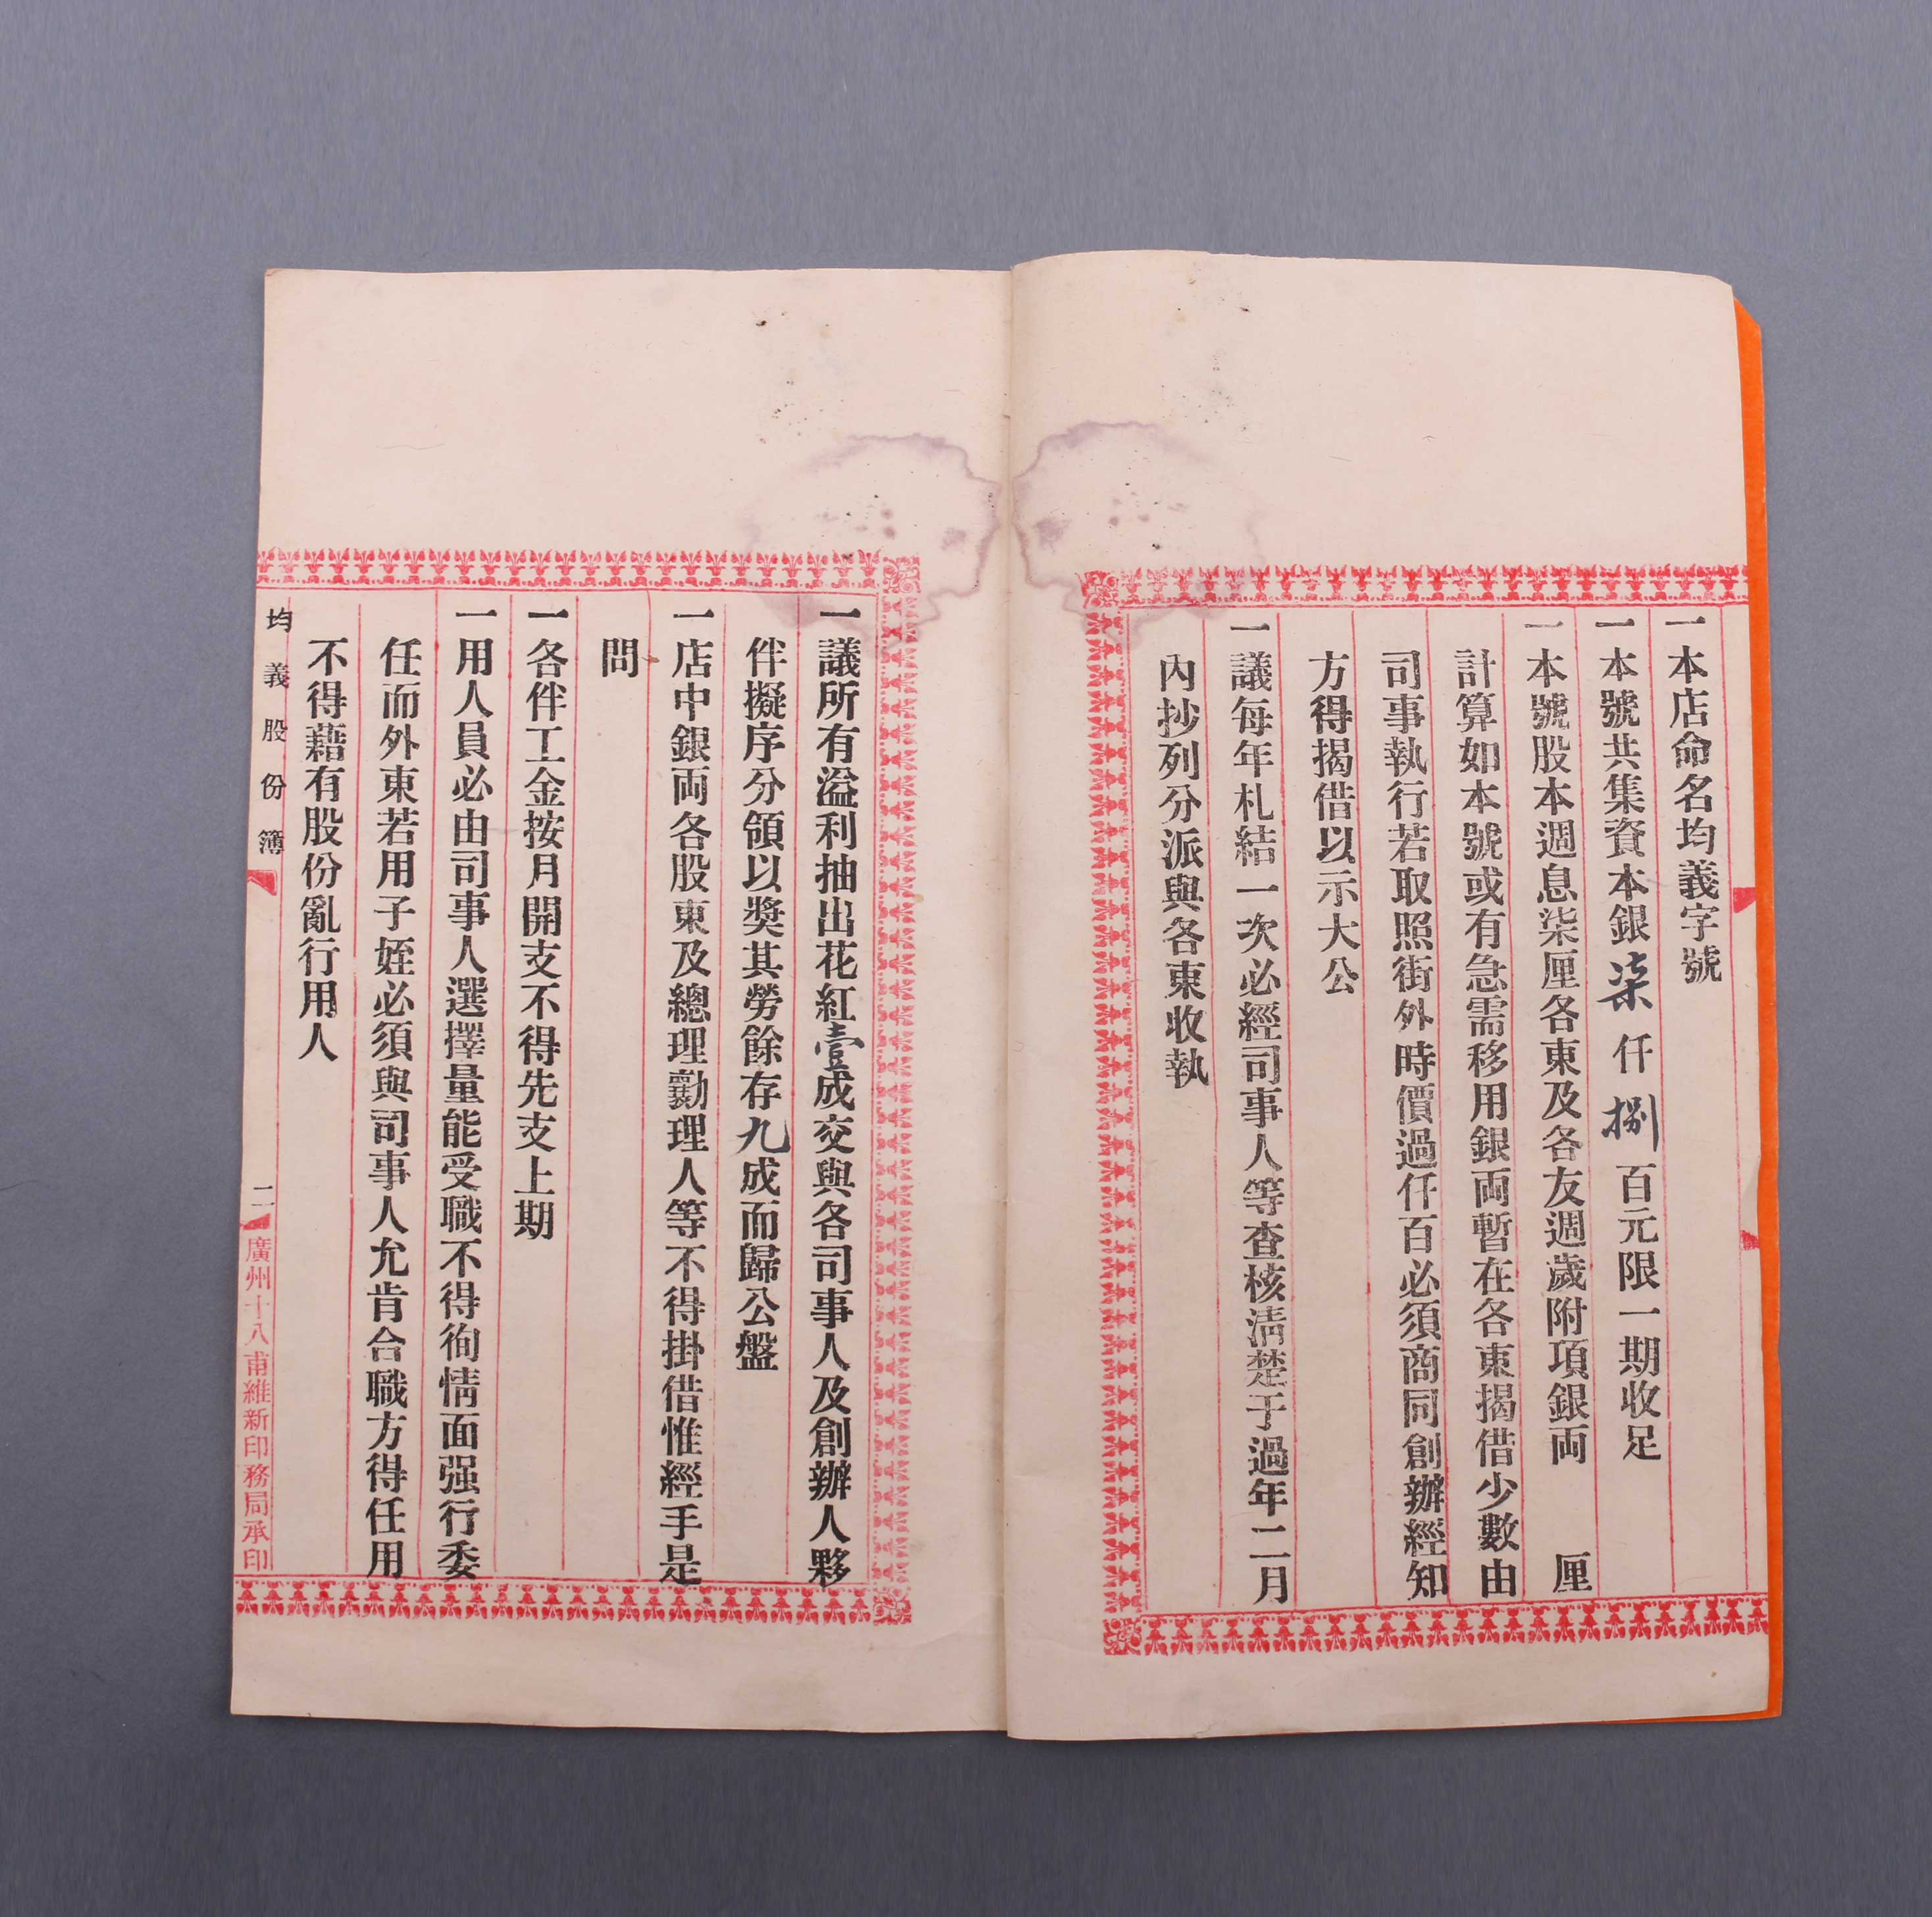 一本店命名均義字號
一本號共集資本銀柒仟捌百元限一期收足
一本號股本週息柒厘各東及各友週歲附項銀両　厘
計算如本號或有急需移用銀両暫在各東揭借少數由
司事執行若取照街外時價過仟百必須商同創辦經知
方得揭借以示大公
一議每年札結一次必經司事人等查核淸楚于過年二月
內抄列分派與各東收執
一議所有溢利抽出花紅壹成交與各司事人及創辦人夥
伴擬序分領以獎其勞餘存九成而歸公盤
一店中銀両各股東及總理勷理人等不得掛借惟經手是
問
一各伴工金按月開支不得先支上期
一用人員必由司事人選擇量能受職不得徇情面强行委
任而外東若用子姪必須與司事人允肯合職方得任用
不得藉有股份亂行用人
均義股份簿
二
廣州十八甫維新印務局承印